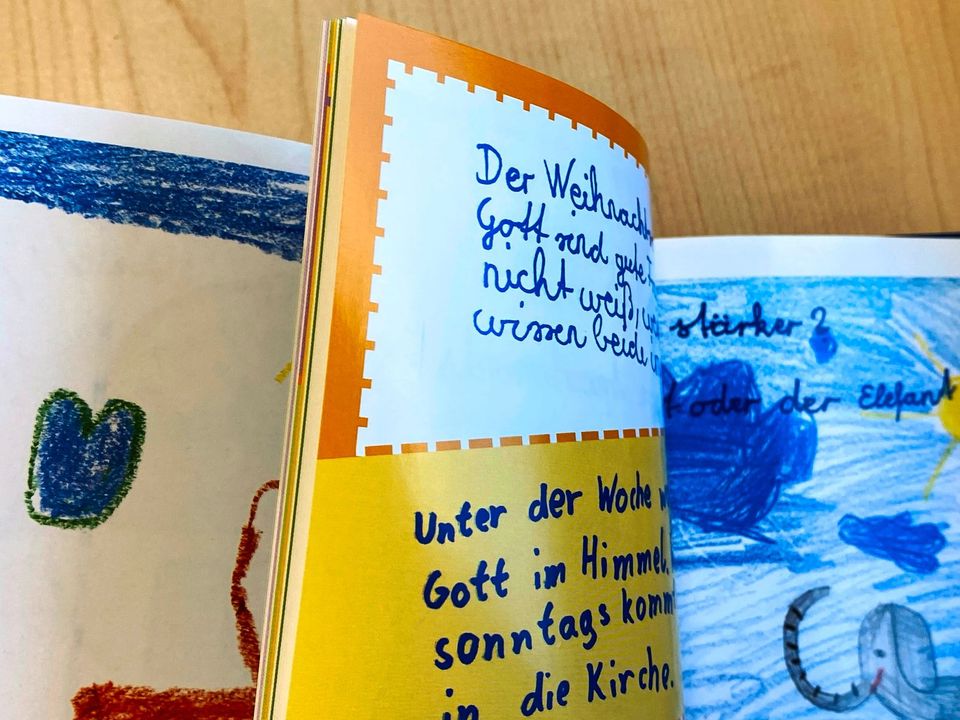 Der Weihnacht
Gott sind gute
nicht weiß,
wissen beide
Unter der Woche
Gott im Himmel.
sonntags kommt
in die Kirche.
stärker?
oder der Elefant